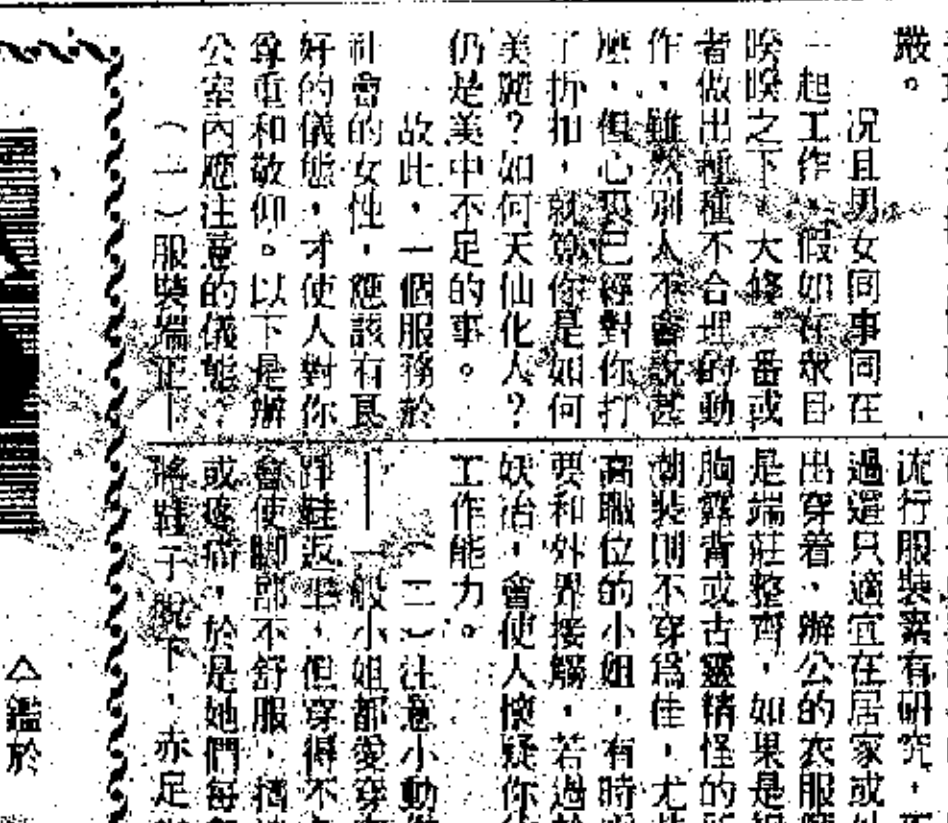 嚴。
況且男女同事同在
一起工作，假如在衆目
睽睽之下，大修一番或
者做出種種不合理的動
作，雖然別人不會說甚
麽，但心裏已經對你打
了折扣，就算你是如何
美麗？如何天仙化人？
仍是美中不足的事。
故此，一個服務於
社會的女性，應該有良
好的儀態，才使人對你
尊重和敬仰。以下是辦
公室內應注意的儀態？
（一）服裝端正—
流行服裝素有研究，不
過還只適宜在居家或外
出穿着，辦公的衣服應
是端莊整齊，如果是
胸露背或古靈精怪的
潮裝則不穿爲佳，尤其
高職位的小姐，有時
要和外界接觸，若過於
妖冶，會使人懷疑你
工作能力。
（二）注意小動
——一般小姐都愛穿
踭鞋返工，但穿得不
會使脚部不舒服，
或疼痛，於是她們每
將鞋子脫下，赤足
△鑑於